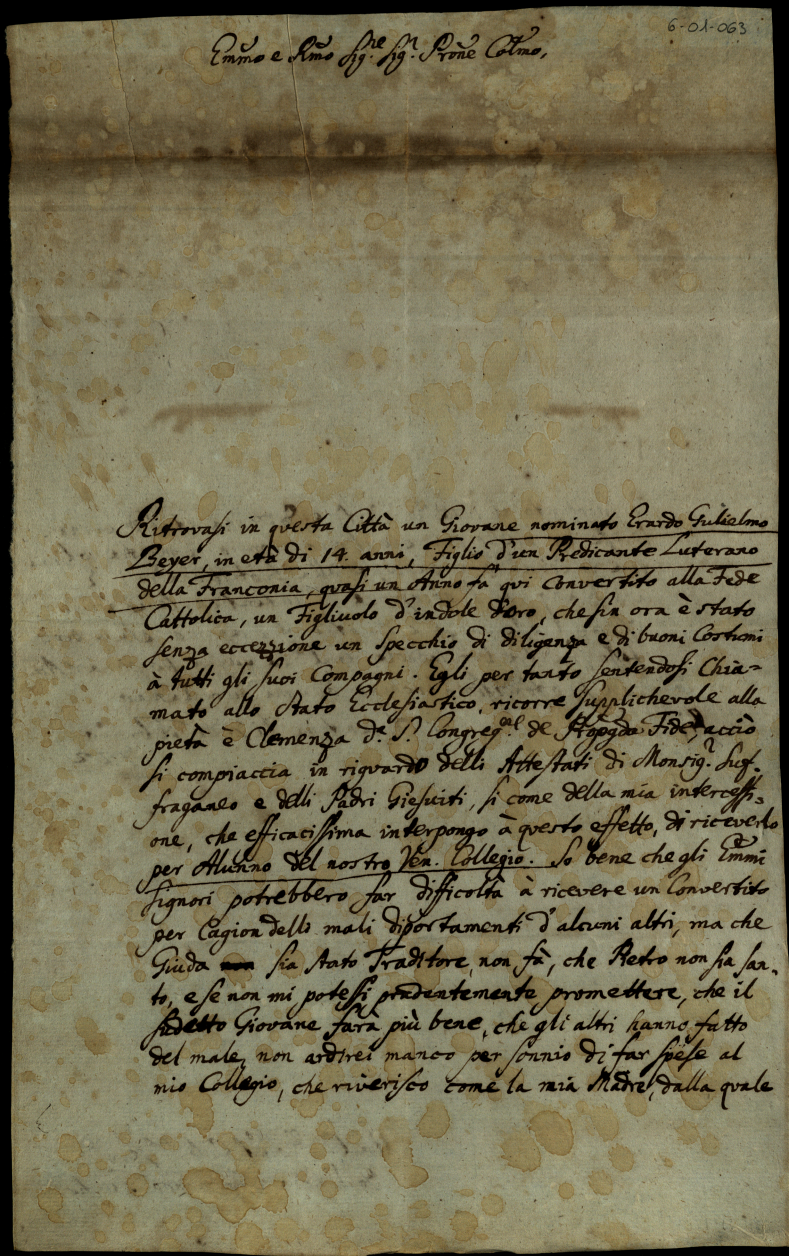 6-01-063
Emmo e Rmo Sig.re Sig.r Prone Colmo,
Ritrovasi in questa Città un Giovane nominato Erardo Gulielmo
Beyer, in età di 14. anni, Figlio d'un Predicante Luterano
della Franconia, quasi un Anno fà qui convertito alla Fede
Cattolica, un Figliuolo d'indole d'oro, che sin ora è stato
senza eccezzione un specchio di diligenza e di buoni Costumi
à tutti gli suoi Compagni. Egli per tanto sentendosi Chia=
mato allo stato Ecclesiastico, ricorre supplichevole alla
pietà è Clemenza d. S. Congreg. de Fide, acciò
si compiaccia in riguardo delli Attestati di Monsig.r Suf=
fraganeo e delli Padri Giesuiti, si come della mia intercessi=
one, che efficacissima interpongo à questo effetto, di riceverlo
per Alunno del nostro Ven. Collegio. So bene che gli Emmi
Signori potrebbero far difficoltà à ricevere un Convertito
per Cagion delli mali diportamenti d'alcuni altri, ma che
Giuda sia stato Traditore, non fà, che Pietro non sia san=
to, e se non mi potessi prudentemente promettere, che il
sudetto Giovane farà più bene, che gli altri hanno fatto
del male, non ardirei manco per sonnio di far spese al
mio Collegio, che riverisco come la mia Madre, dalla quale